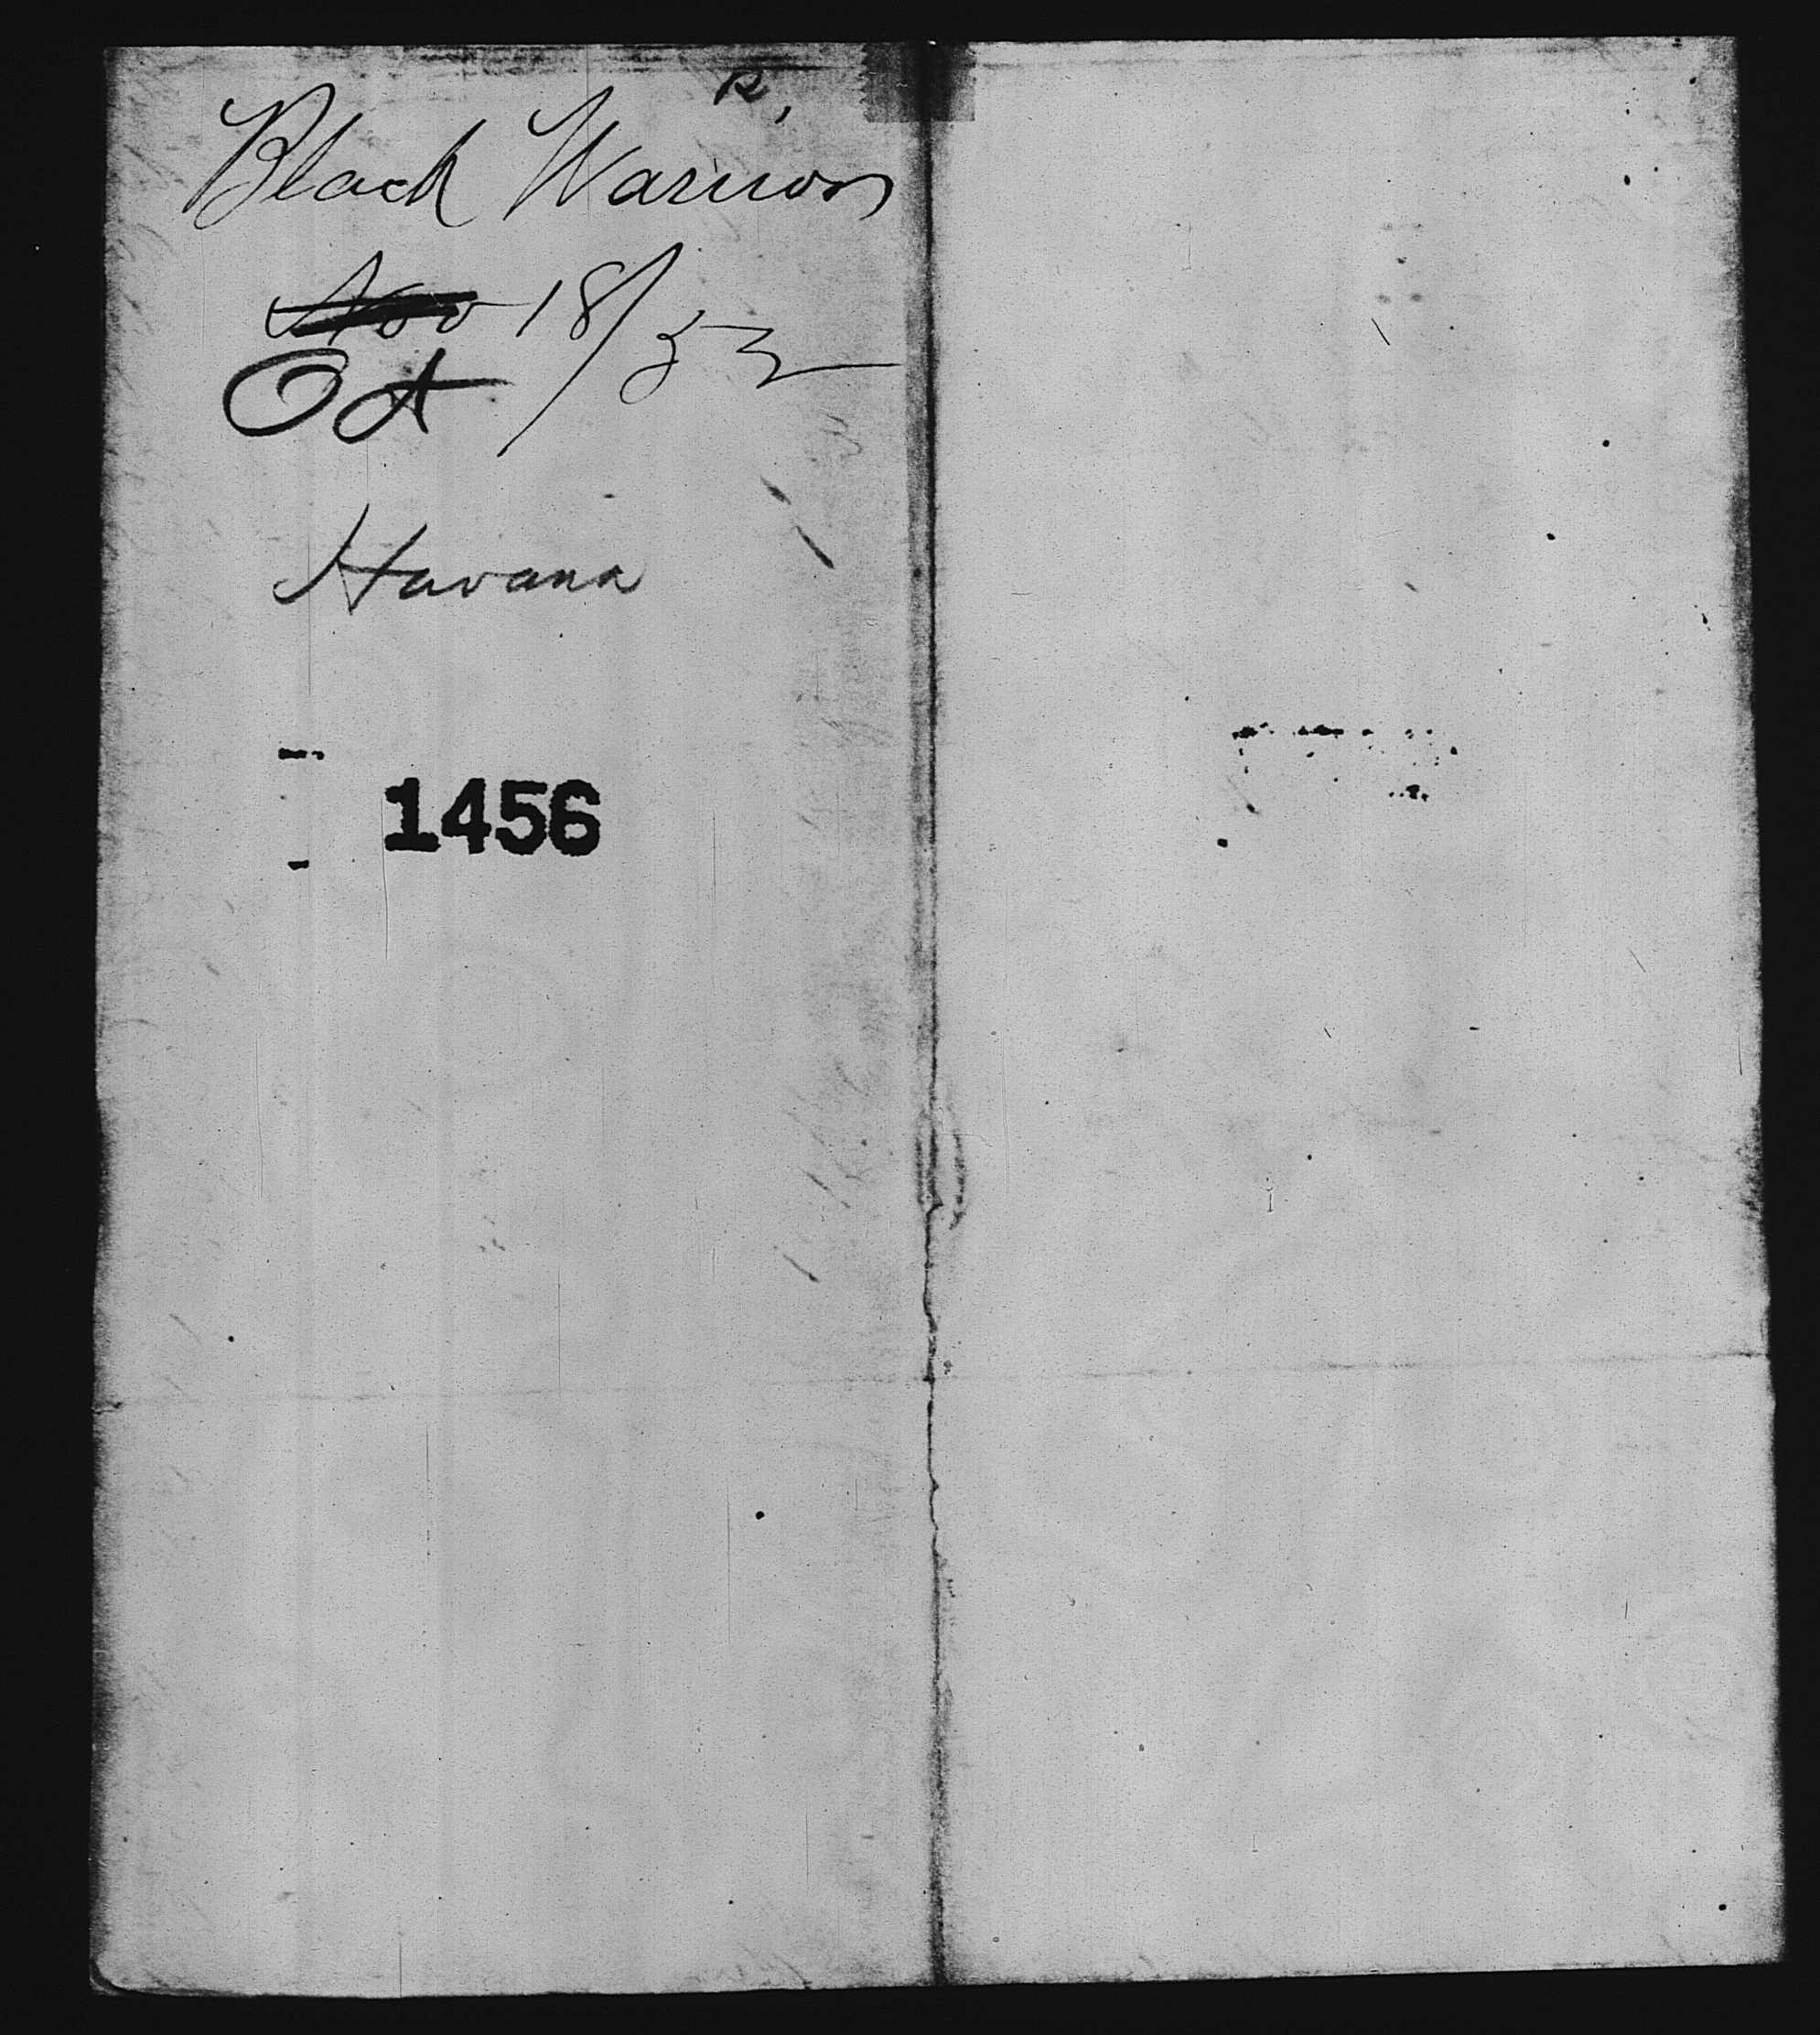 R,
Black Warrior
Nov 18/52
Oct
Havana
1456